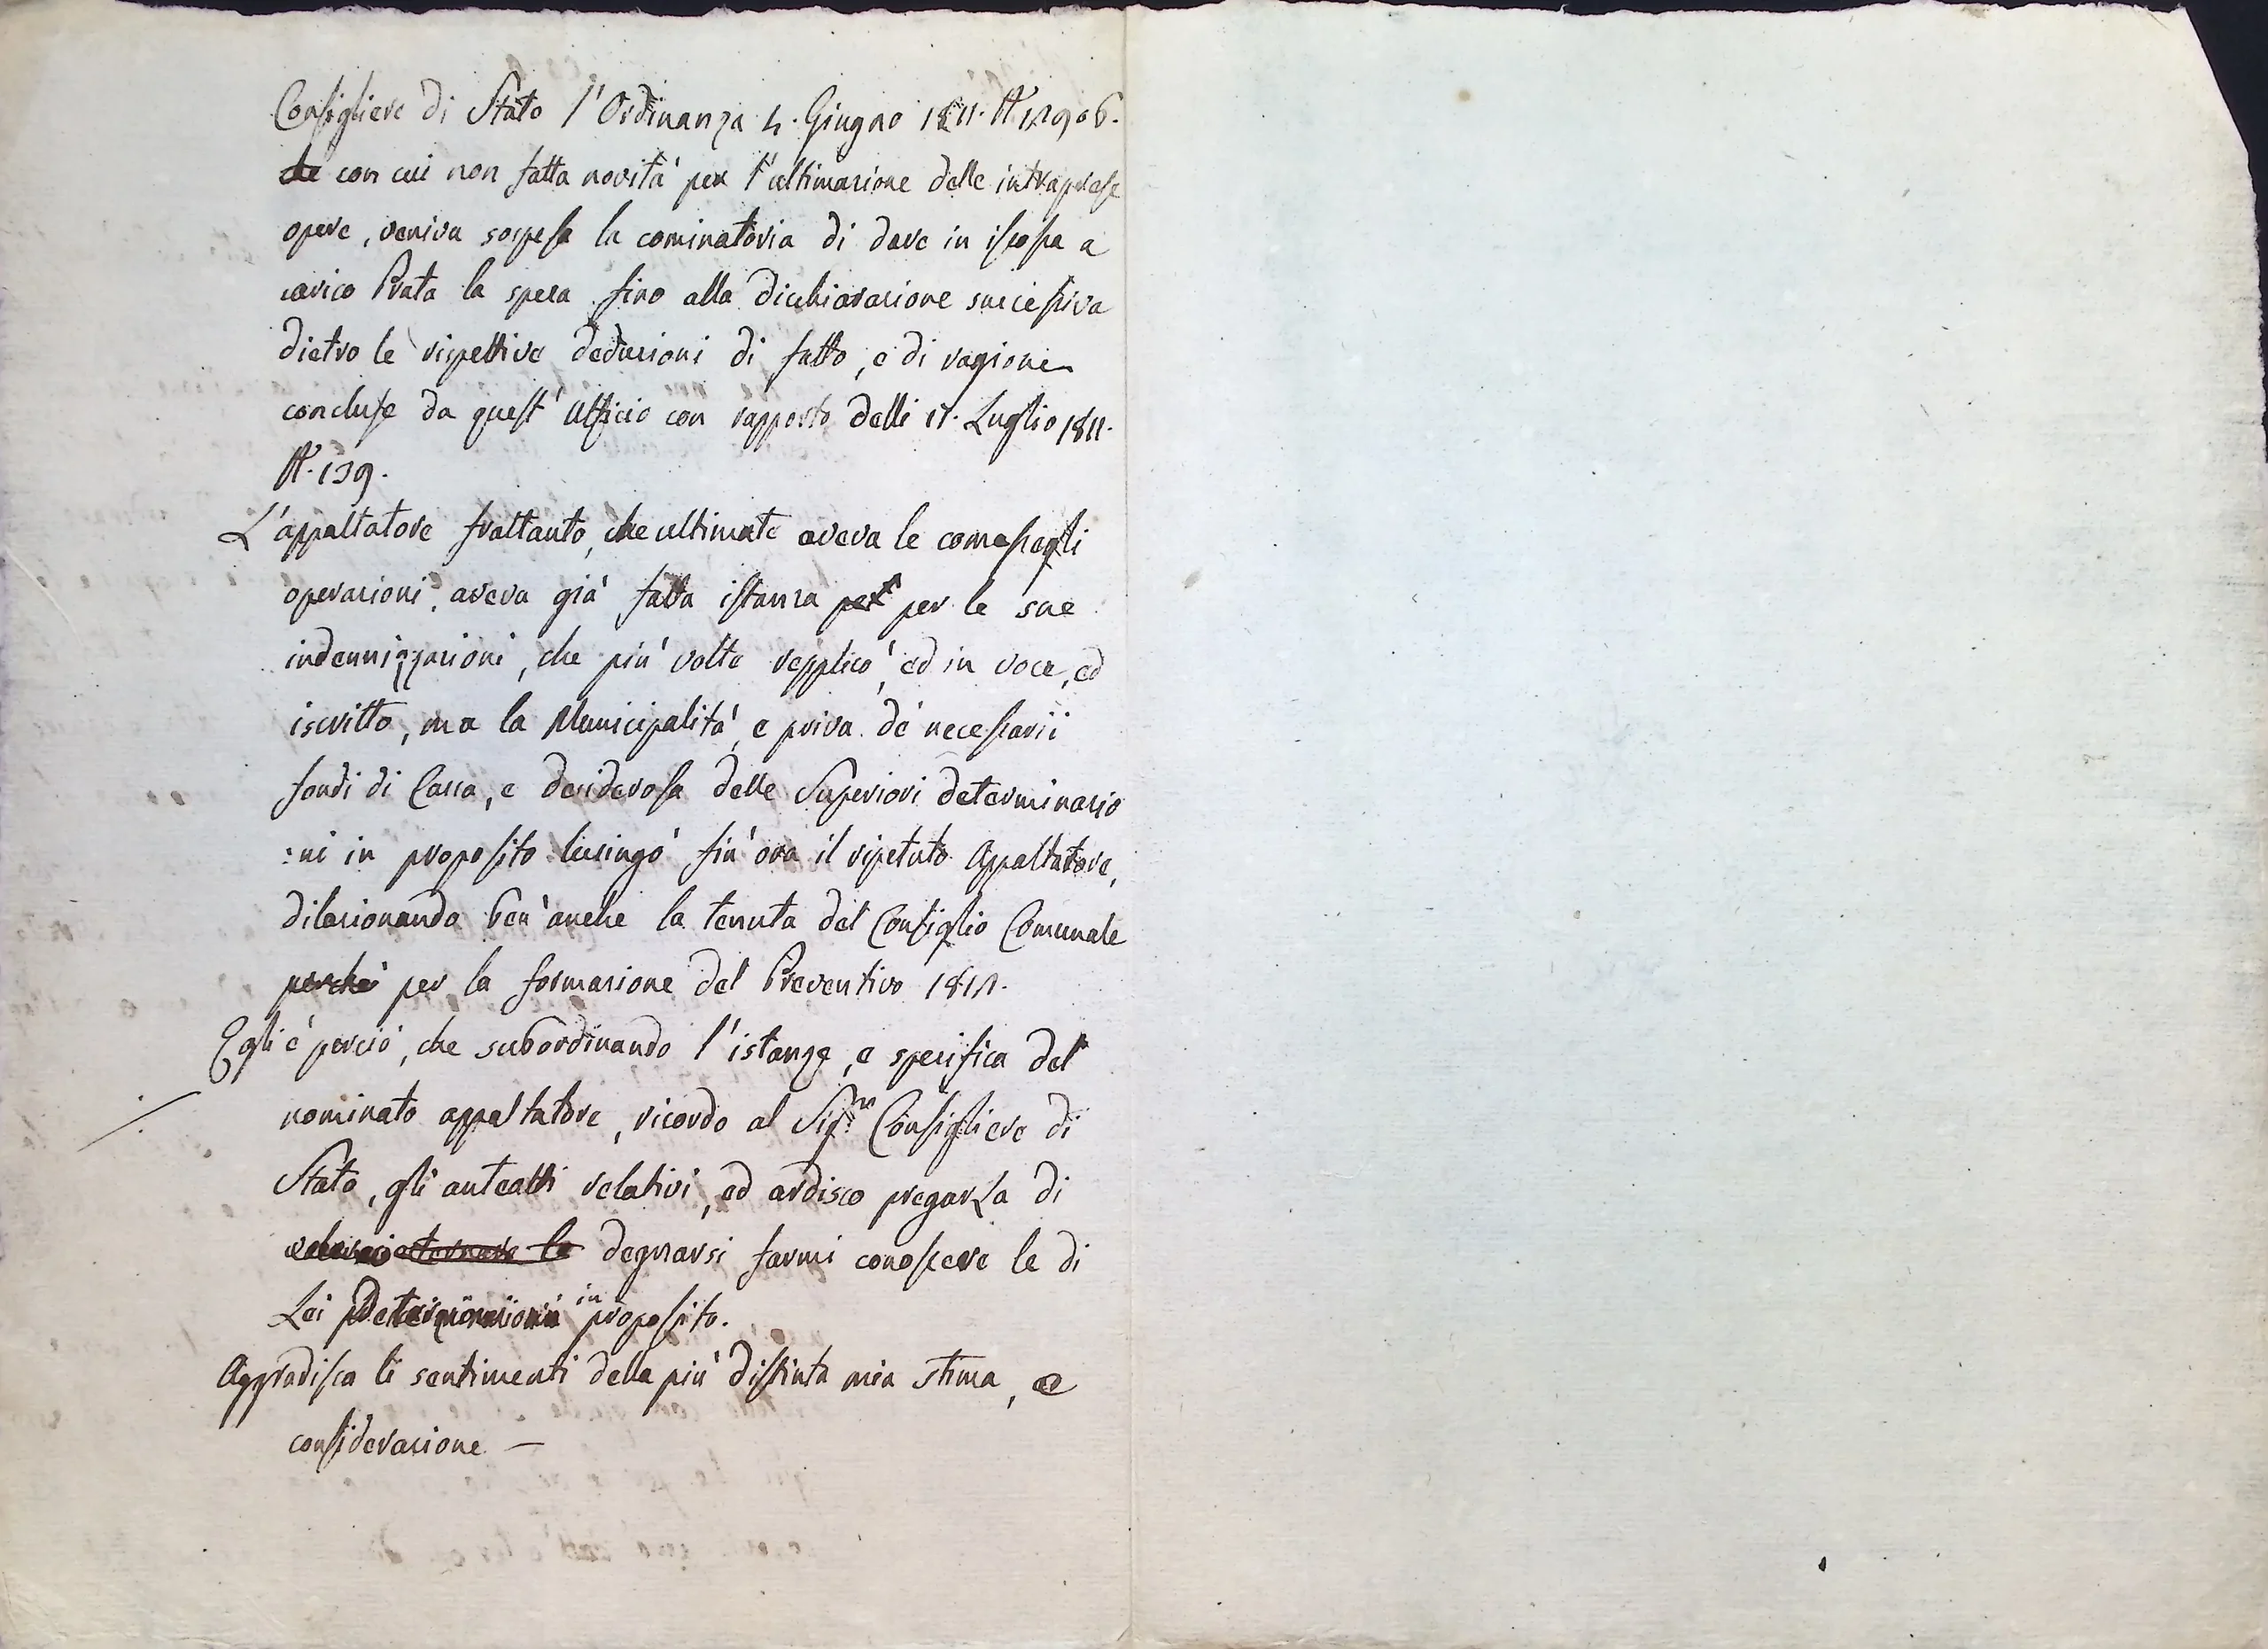 Consigliere di Stato l'Ordinanza 4. Giugno 1811. N. 12906.
che con cui non fatta novità per l'ultimazione delle intraprese
opere, veniva sospesa la cominatoria di dare in iscossa a
carico Prata la spesa fino alla dichiarazione successiva
dietro le rispettive deduzioni di fatto, e di ragione
concluse da quest'Ufficio con rapporto delli 17. Luglio 1811.
N. 139.
L'appaltatore frattanto, che ultimate aveva le comessegli
operazioni, aveva già fatta istanza per per le sue
indennizzazioni, che più volte repplicò, ed in voce, ed
iscritto, ma la Municipalità, e priva de' necessarii
fondi di Cassa, e desiderosa delle Superiori determinazio
:ni in proposito lusingò fin'ora il ripetuto Appaltatore,
dilazionando ben'anche la tenuta del Consiglio Comunale
perchè per la formazione del Preventivo 1812.
Egli è perciò, che subordinando l'istanze, e specifica del
nominato appaltatore, ricordo al Sig.r Consigliere di
Stato, gli anteatti relativi, ed ardisco pregarLa di
esternare le degnarsi farmi conoscere le di
Lei Determinazioni in proposito.
Aggradisca li sentimenti della più distinta mia stima, e
considerazione —